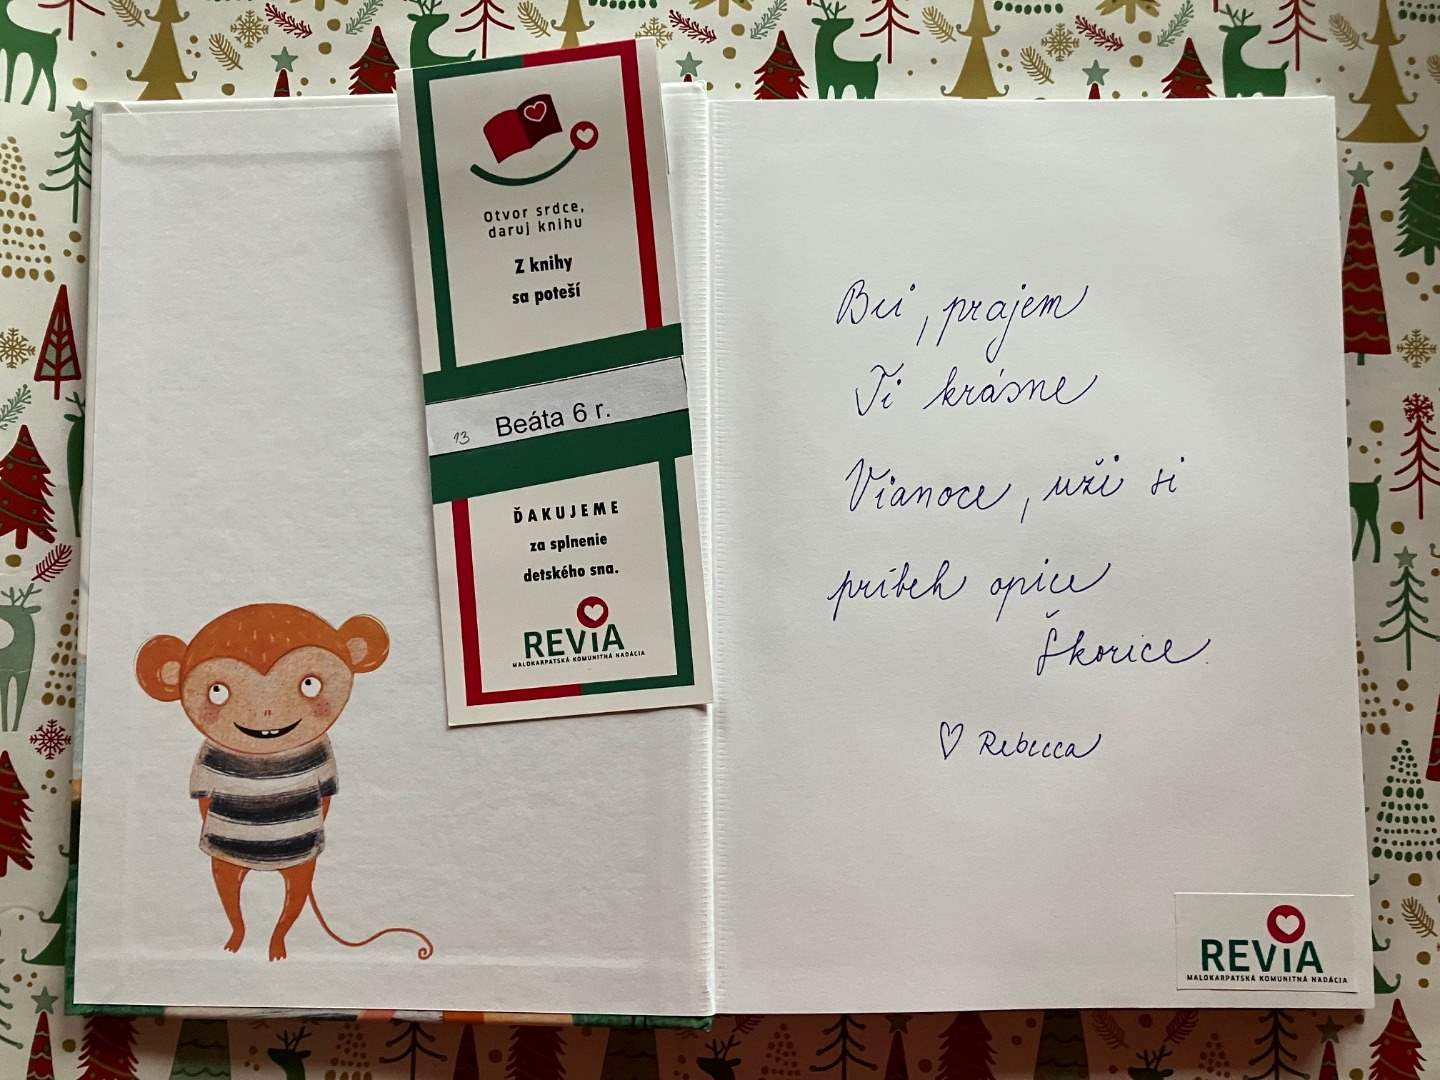 Otvor srdce,
daruj knihu
Z knihy
sa poteší
13 Beáta 6 r.
ĎAKUJEME
za splnenie
detského sna.
REViA
MALOKARPATSKÁ KOMUNITNÁ NADÁCIA
Bei, prajem
Ti krásne
Vianoce, uži si
príbeh opice
Škorice.
♡ Rebecca
REViA
MALOKARPATSKÁ KOMUNITNÁ NADÁCIA